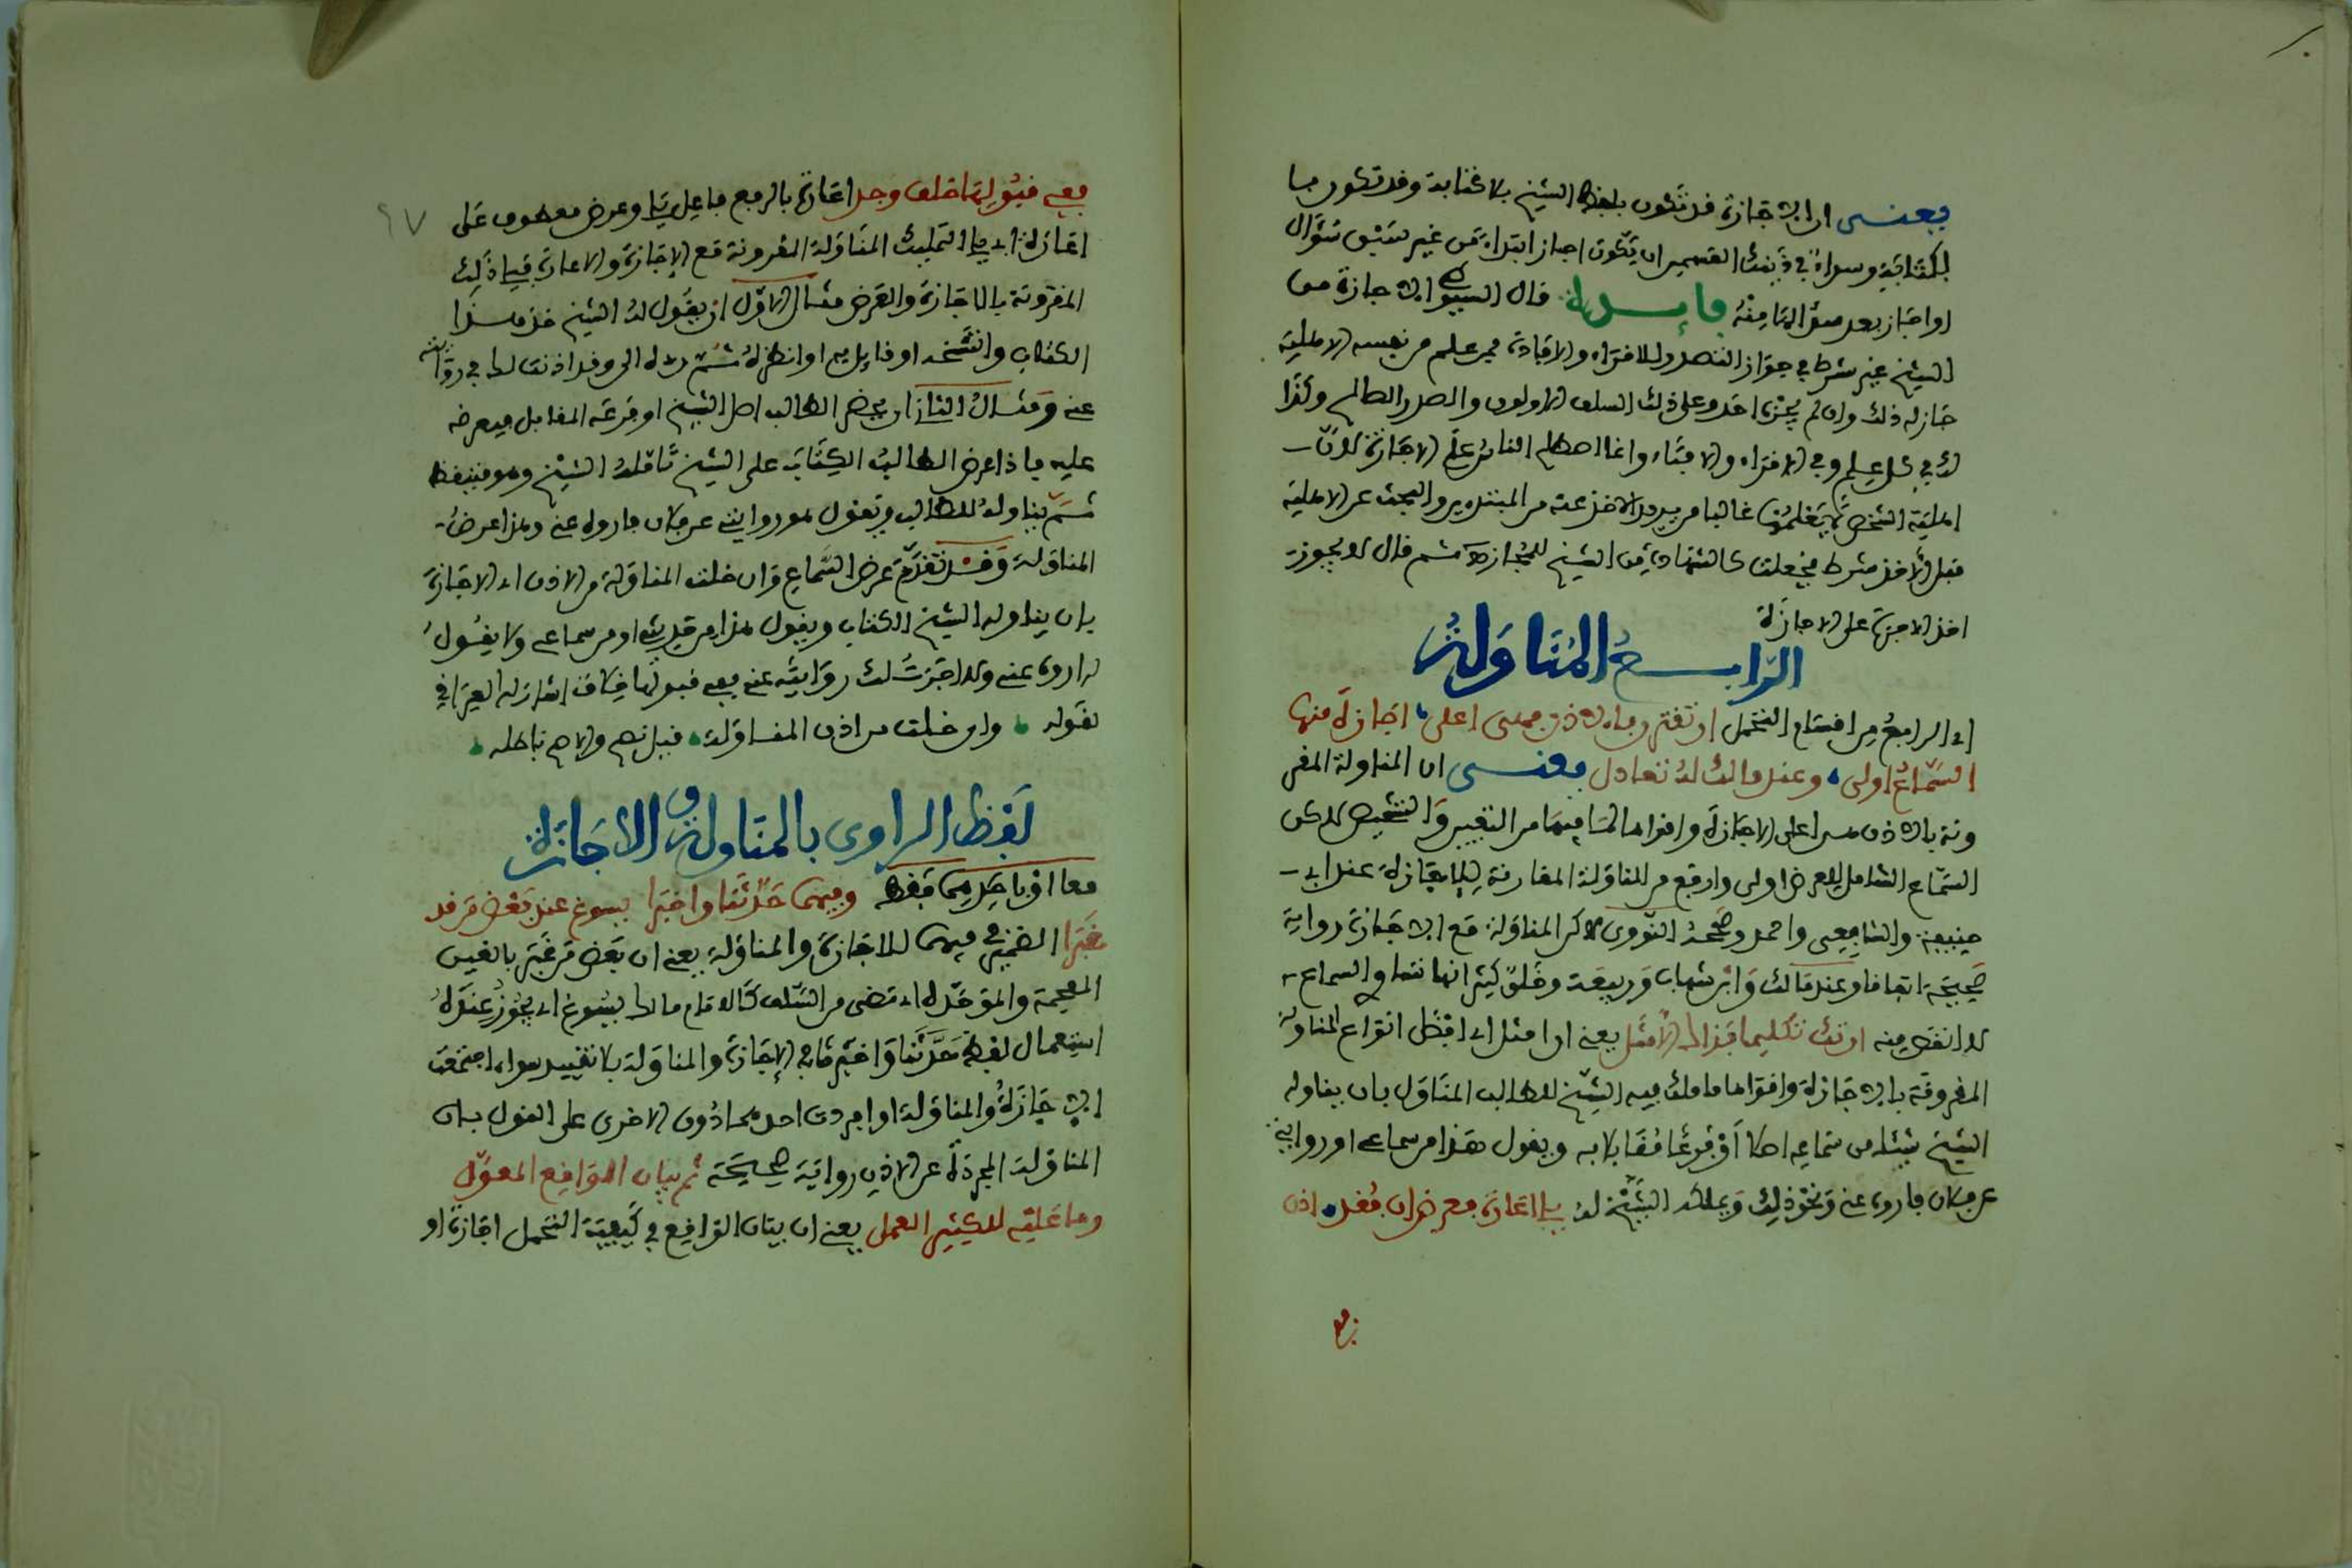 يعنى ان الاجازة قد تكون بلفظ الشيخ بلا كتابة وقد تكون بـا
لكتابة وسواء في ذينك القسمين ان يكون اجاز ابتداء من غير سبق سؤال
او اجاز بعد سؤالها منه فايـــدة قال السيوطي الاجازة من
الشيخ غير شرط في جواز التصدر للاقراء والافادة فمن علم من نفسه الاهلية
جاز له ذلك وان لم يجزه احد وعلى ذلك السلف الاولون والصدر الصالح وكذا
لك في كل علم وفي الاقراء والافتاء وانما اصطلح الناس على الاجازة لان
اهلية الشخص لا يعلمها غالبا من يريد الاخذ عنه من المبتدءين والبحث عن الاهلية
قبل الاخذ شرط فجعلت كالشهادة من الشيخ للمجاز له ثم قال لا يجوز
اخذ الاجرة على الاجازة
الرابـــع المناولة
اي الرابع من اقسام التحمل ان تقترن بالاذن فهى اعلى اجازة منها
السماع اولى وعند مالك له تعادل يعنـــى ان المناولة المقر
ونة بالاذن من اعلى الاجازة واقواها لما فيها من التعيين والتشخيص لاكن
السماع الشامل للعرض اولى وارفع من المناولة المقارنة للاجازة عند ابي
حنيفة والشافعى واحمد وصححه النووى لاكن المناولة مع الاجازة رواية
صحيحة اتفاقا وعند مالك وابن شهاب وربيعة وخلق كثير انها تساوي السماع
لا انقص منه ان تك تكليما فذاك الامثل يعنى ان امثل اي افضل انواع المناولة
المقرونة بالاجازة واقواها ما ملك فيه الشيخ للطالب المناول بان يناوله
الشيخ شيئا من سماعه اصلا او فرعا مقابلا به ويقول هذا من سماعى او روايتي
عن فلان فاروه عنى ونحو ذلك ويملكه الشيخ له يلى اعارة فعرض ان فقد اذن
فع
ففى قبولها خلف وجد اعارة بالرفع فاعل يلى وعرض معطوف على
اعارة اي يلى التمليك المناولة المقرونة مع الاجازة والاعارة فيلى ذلك
المقرونة بالاجازة والعرض مثال الاول ان يقول له الشيخ خذ هـــذا
الكتاب وانتسخه او قابل به او انظره ثم رده الي وقد اذنت لك في روايته
عنى ومثال الثاني ان يحضر الطالب اصل الشيخ او فرعه المقابل فيعرضه
عليه فاذا عرض الطالب الكتاب على الشيخ تامله الشيخ وهو متيقظ
ثم يناوله للطالب ويقول هو روايتي عن فلان فاروه عنى وهذا عرض
المناولة وقد تقدم عرض السماع وان خلت المناولة من الاذن اي الاجازة
بان يناوله الشيخ الكتاب ويقول هذا من حديثى او من سماعى ولا يقول
له اروه عنى ولا اجزت لك روايته عنى ففى قبولها خلاف اشار له العراقى
بقوله وان خلت من اذن المناولة قيل تصح والاصح باطلة
لفظ الراوى بالمناولة والاجازة
معا او باحديهما فقط وفيهما حدثنا واخبرا يسوغ عند بعض من قد
غبرا الضمير في فيهما للاجازة والمناولة يعنى ان بعض من غبر بالغين
المعجمة والموحدة اي مضى من السلف كالامام مالك يسوغ اي يجوز عنده
استعمال لفظ حدثنا واخبرنا في الاجازة والمناولة بلا تقييد سواء اجتمعت
الاجازة والمناولة او افردت احداهما دون الاخرى على القول بان
المناولة المجردة عن الاذن رواية صحيحة ثم بيان الواقع المعول
وما عليه للكثير العمل يعنى ان بيان الواقع في كيفية التحمل اجازة او
٦٧